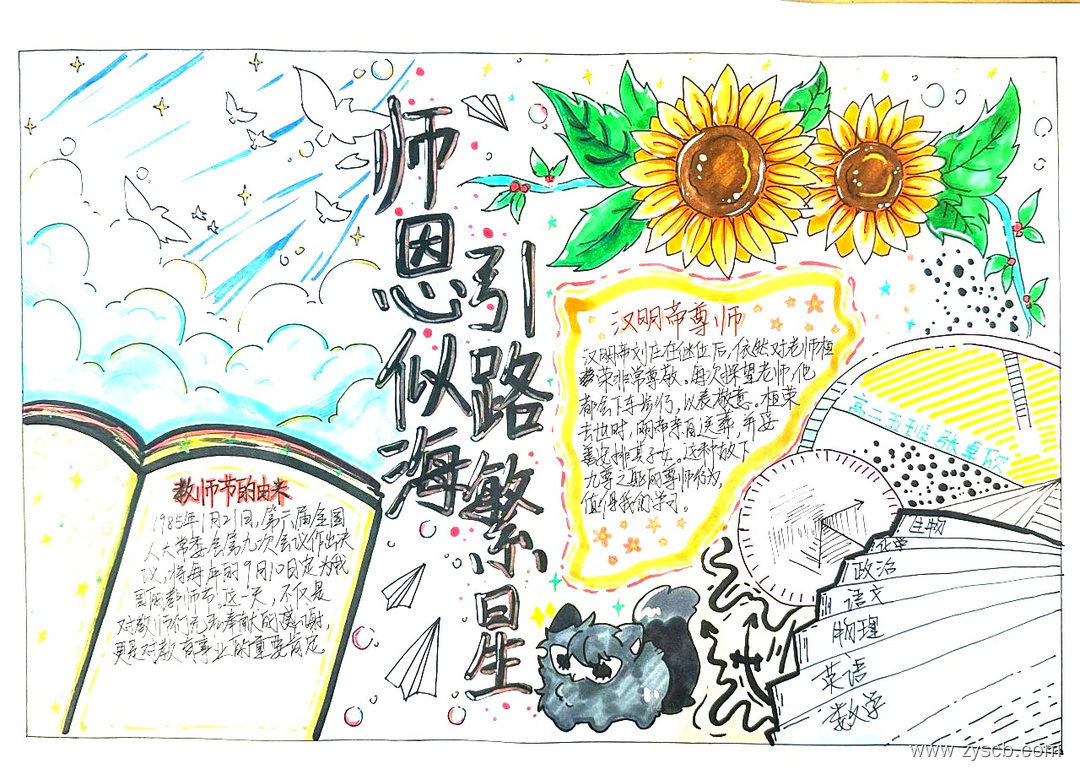 师恩似海
引路繁星
教师节的由来
1985年1月21日,第六届全国
人大常委会第九次会议作出决
议,将每年的9月10日定为我
国的教师节,这一天,不仅是
对教师们无私奉献的感谢,
更是对教育事业的重要肯定。
汉明帝尊师
汉明帝刘庄在继位后,依然对老师桓
荣非常尊敬。每次探望老师,他
都会下车步行,以表敬意。桓荣
去世时,明帝亲自送葬,并妥
善安排其子女。这种放下
九尊之躯的尊师行为,
值得我们学习。
高二五班 张
生物
化学
政治
语文
物理
英语
数学
www.zyscb.com